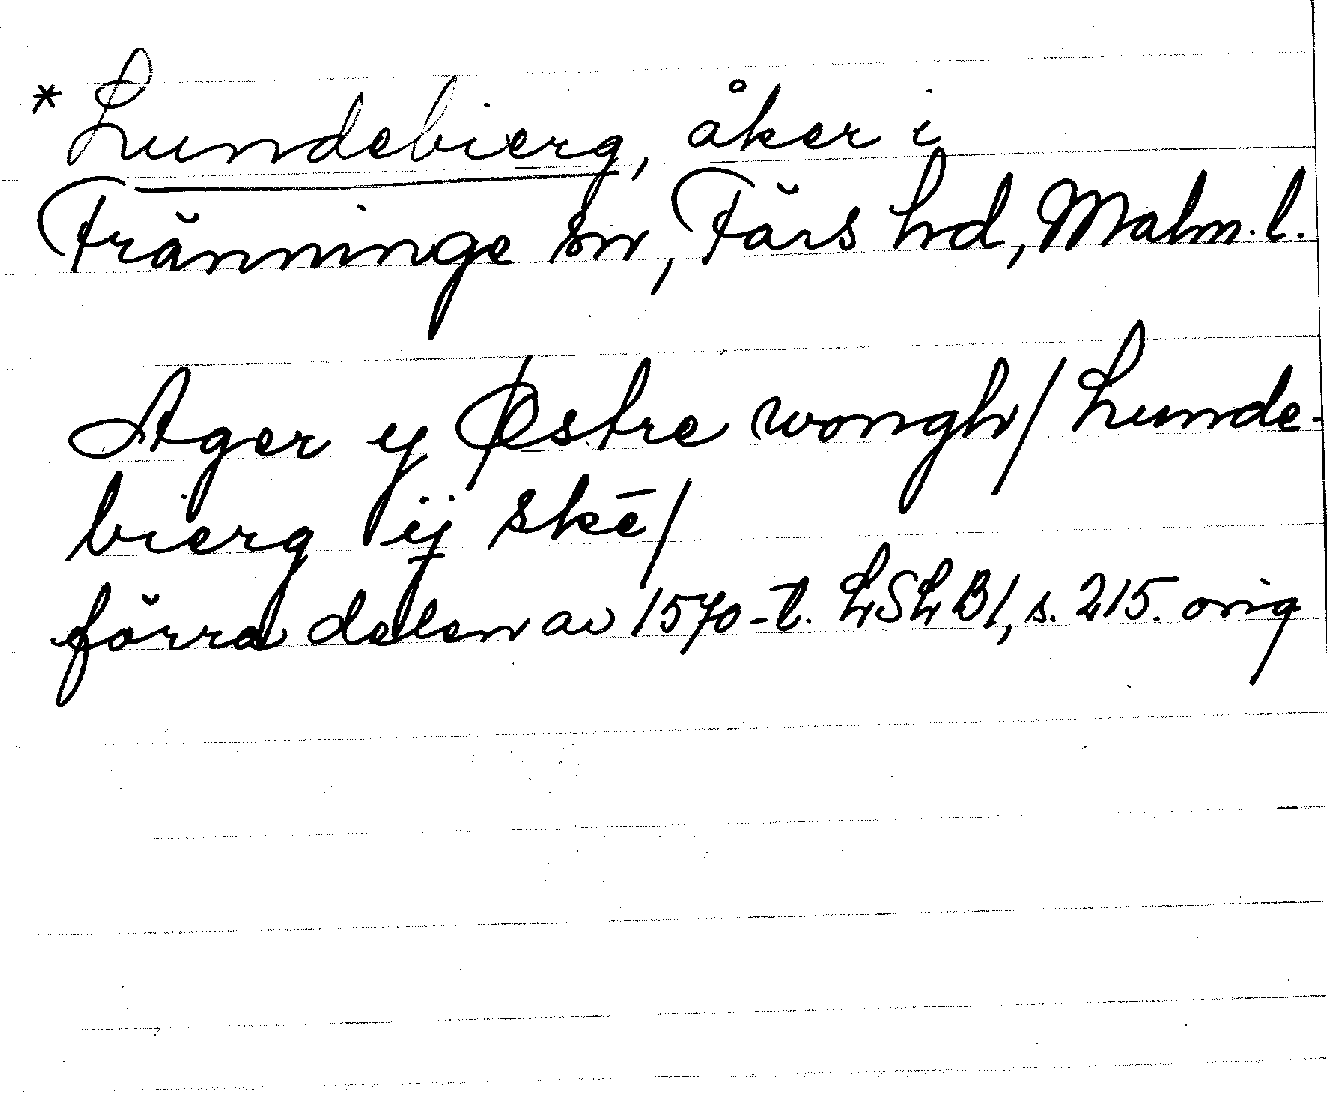 * Lundebierg, åker i
Fränninge sn, Färs hd, Malm. l.
Ager y Østre wongh/ Lunde-
bierg ij skē/
förra delen av 1570-t. LSLB1, s. 215. orig